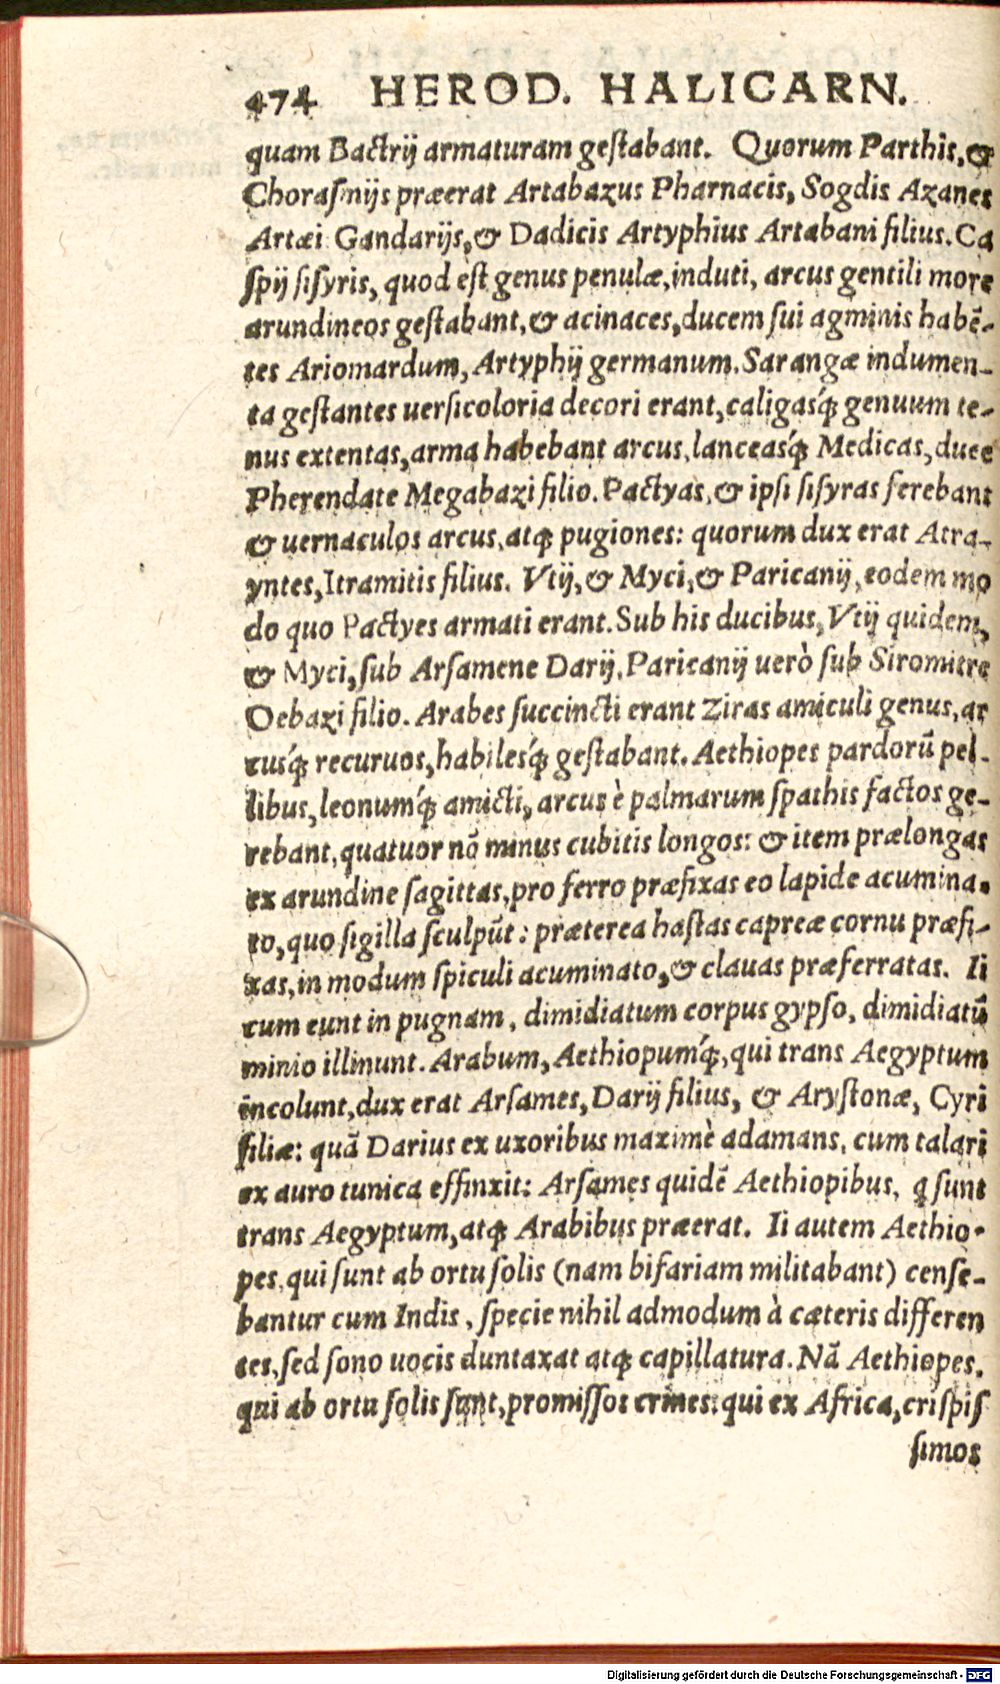 474 HEROD. HALICARN.
quam Bactrij armaturam geſtabant. Quorum Parthis, &
Choraſmijs præerat Artabazus Pharnacis, Sogdis Azanes
Artæi Gandarijs, & Dadicis Artyphius Artabani filius. Ca
ſpij ſiſyris, quod eſt genus penulæ, induti, arcus gentili more
arundineos geſtabant, & acinaces, ducem ſui agminis habē-
tes Ariomardum, Artyphij germanum. Sarangæ indumen-
ta geſtantes uerſicoloria decori erant, caligasq́; genuum te-
nus extentas, arma habebant arcus, lanceasq́; Medicas, duce
Pherendate Megabazi filio. Pactyas, & ipſi ſiſyras ferebant
& uernaculos arcus, atq; pugiones: quorum dux erat Atra-
yntes, Itramitis filius. Vtij, & Myci, & Paricanij, eodem mo
do quo Pactyes armati erant. Sub his ducibus, Vtij quidem,
& Myci, ſub Arſamene Darij, Paricanij uerò ſub Siromitre
Oebazi filio. Arabes ſuccincti erant Ziras amiculi genus, ar
cusq́; recuruos, habilesq́; geſtabant. Aethiopes pardorū pel-
libus, leonumq́; amicti, arcus è palmarum ſpathis factos ge-
rebant, quatuor nō minus cubitis longos: & item prælongas
ex arundine ſagittas, pro ferro præfixas eo lapide acumina-
to, quo ſigilla ſculpūt: præterea haſtas capreæ cornu præfi-
xas, in modum ſpiculi acuminato, & clauas præferratas. Ii
cum eunt in pugnam, dimidiatum corpus gypſo, dimidiatū
minio illinunt. Arabum, Aethiopumq́;, qui trans Aegyptum
incolunt, dux erat Arſames, Darij filius, & Aryſtonæ, Cyri
filiæ: quā Darius ex uxoribus maximè adamans, cum talari
ex auro tunica effinxit: Arſames quidē Aethiopibus, q ſunt
trans Aegyptum, atq; Arabibus præerat. Ii autem Aethio-
pes, qui ſunt ab ortu ſolis (nam bifariam militabant) cenſe-
bantur cum Indis, ſpecie nihil admodum à cæteris differen
tes, ſed ſono uocis duntaxat atq; capillatura. Nā Aethiopes,
qui ab ortu ſolis ſunt, promiſſos crines: qui ex Africa, criſpiſ
ſimos
Digitalisierung gefördert durch die Deutsche Forschungsgemeinschaft - DFG